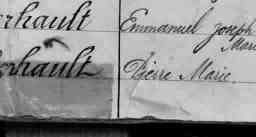 rhault Emmanuel Joseph
Marie
rhault Pierre Marie